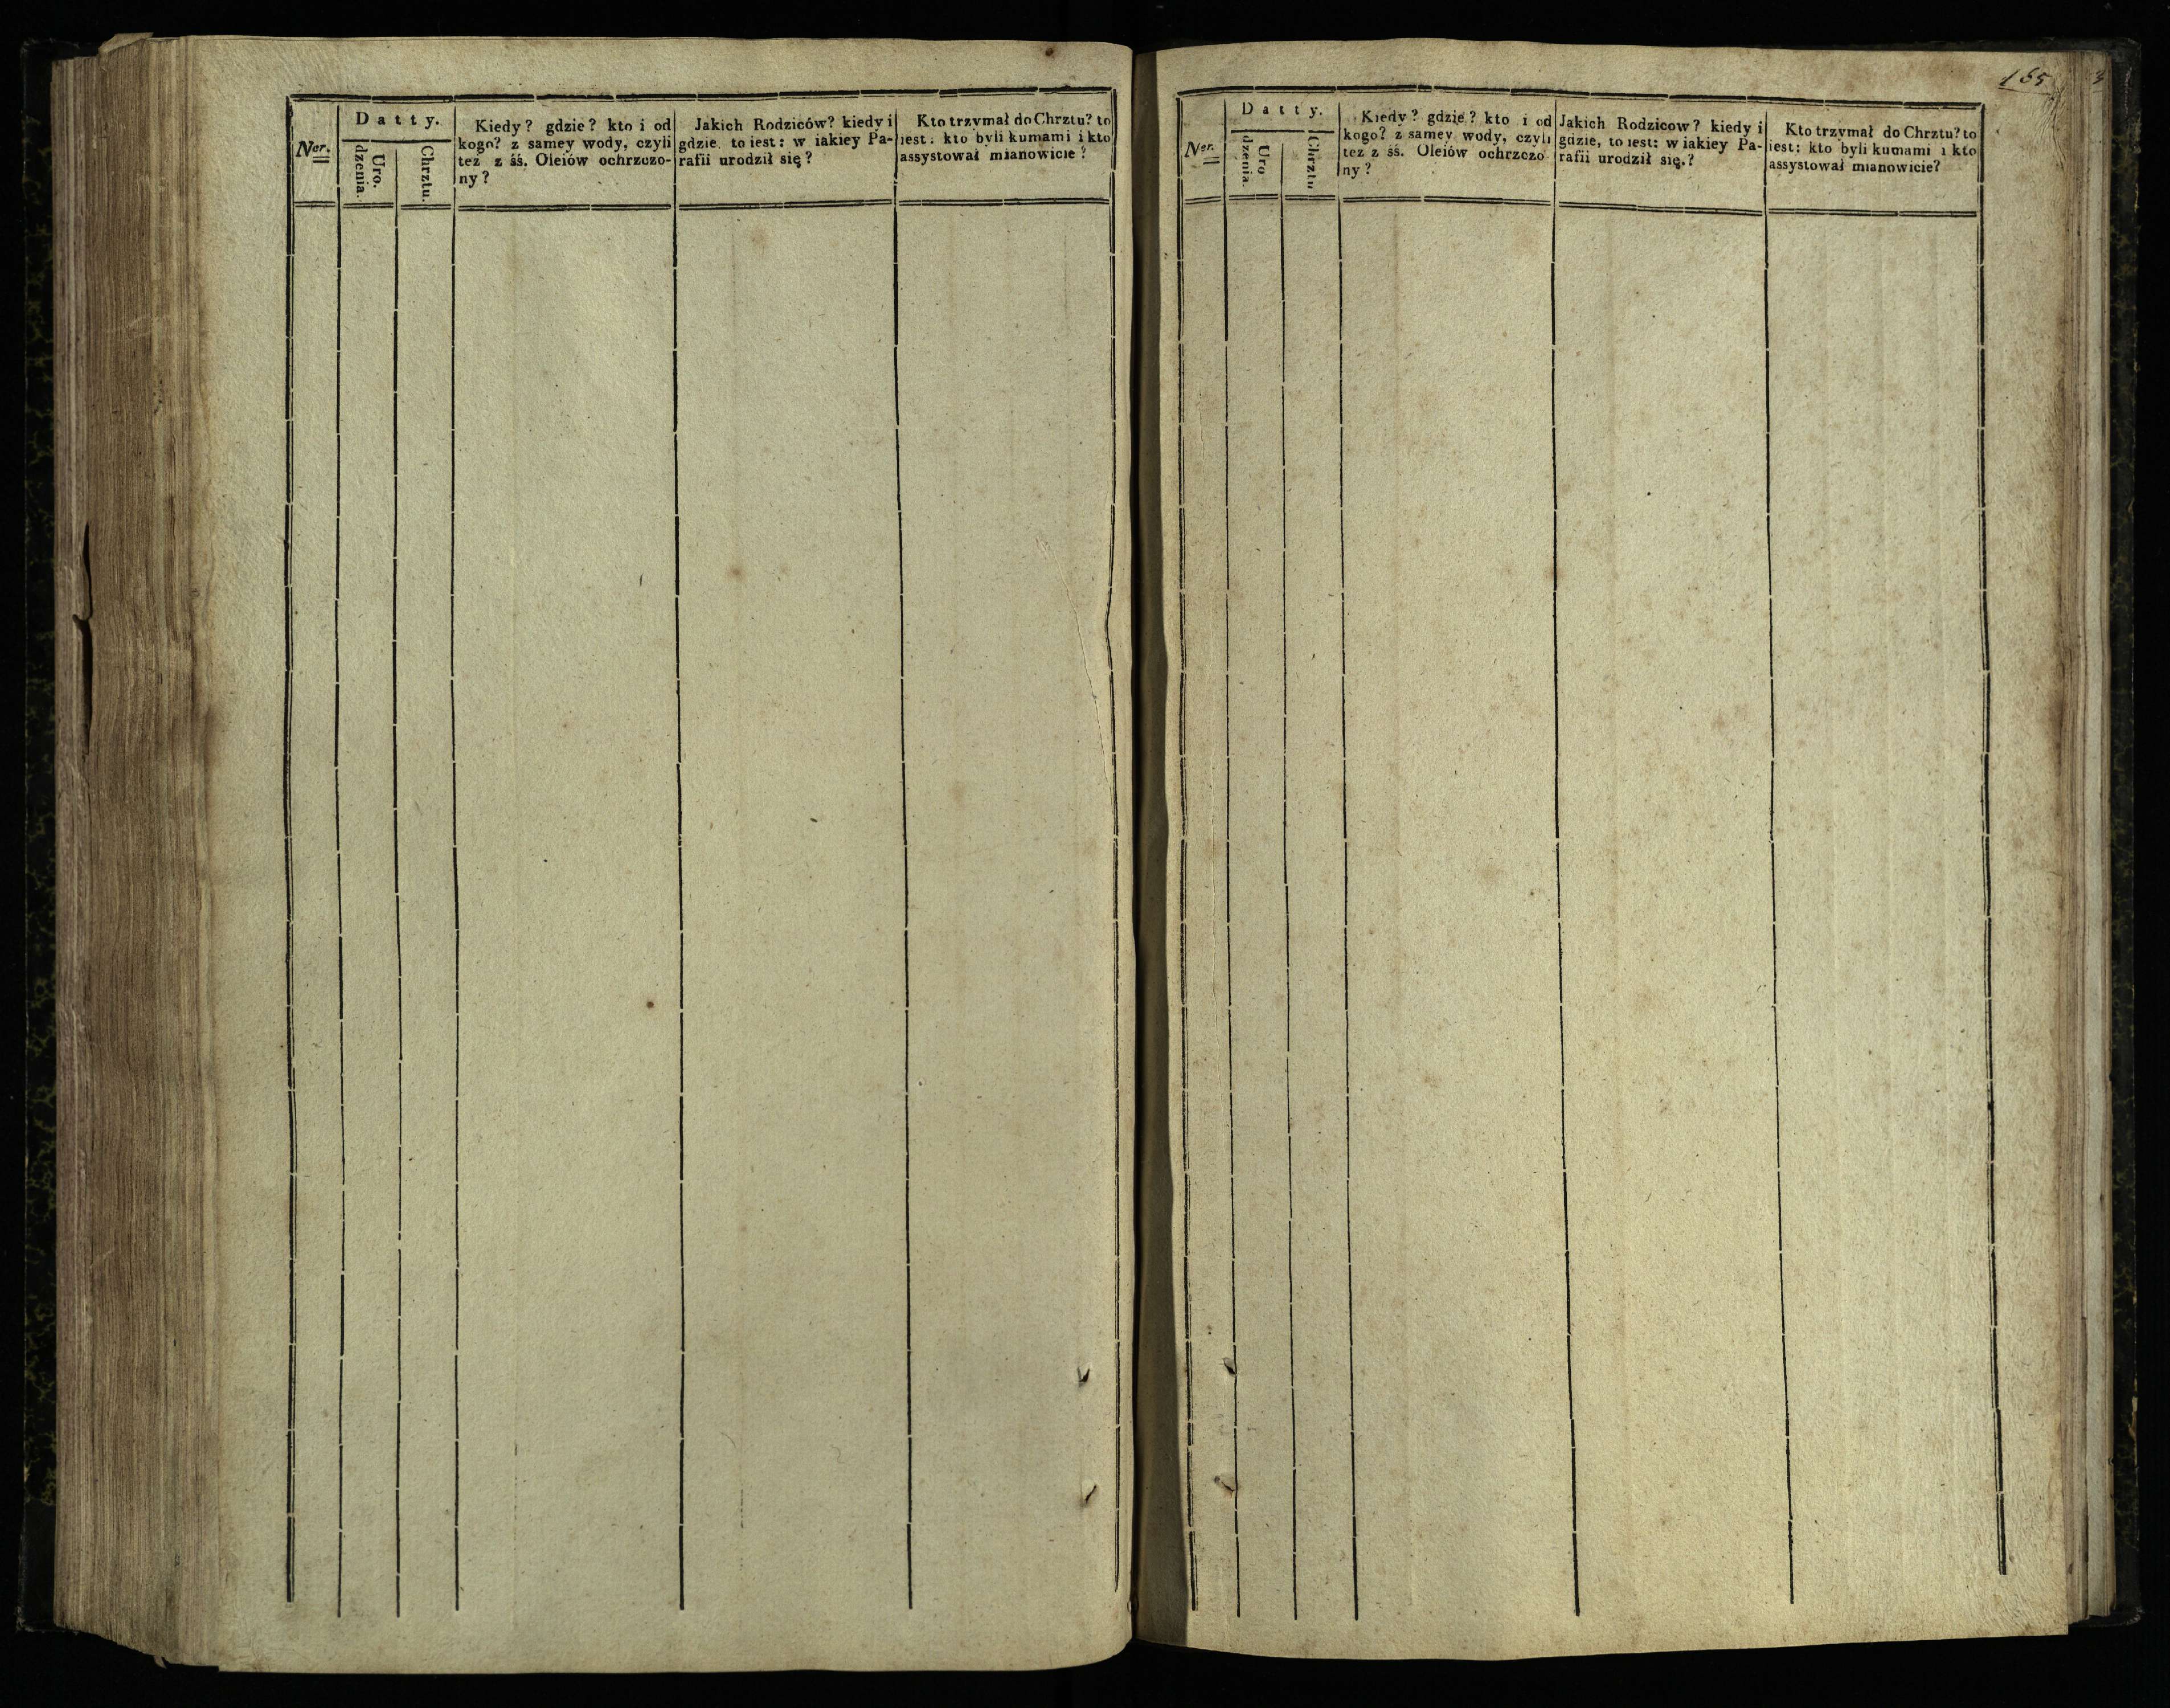 Ner.
Datty.
Uro.
dzenia.
Chrztu.
Kiedy? gdzie? kto i od
kogo? z samey wody, czyli
też z śś. Oleiów ochrzczo-
ny?
Jakich Rodziców? kiedy i
gdzie, to iest: w iakiey Pa-
rafii urodził się?
Kto trzymał do Chrztu? to
iest: kto byli kumami i kto
assystował mianowicie?
165
Ner.
Datty.
Uro
dzenia.
Chrztu
Kiedy? gdzie? kto i od
kogo? z samey wody, czyli
też z śś. Oleiów ochrzczo
ny?
Jakich Rodzicow? kiedy i
gdzie, to iest: w iakiey Pa-
rafii urodził się.?
Kto trzymał do Chrztu? to
iest: kto byli kumami i kto
assystował mianowicie?